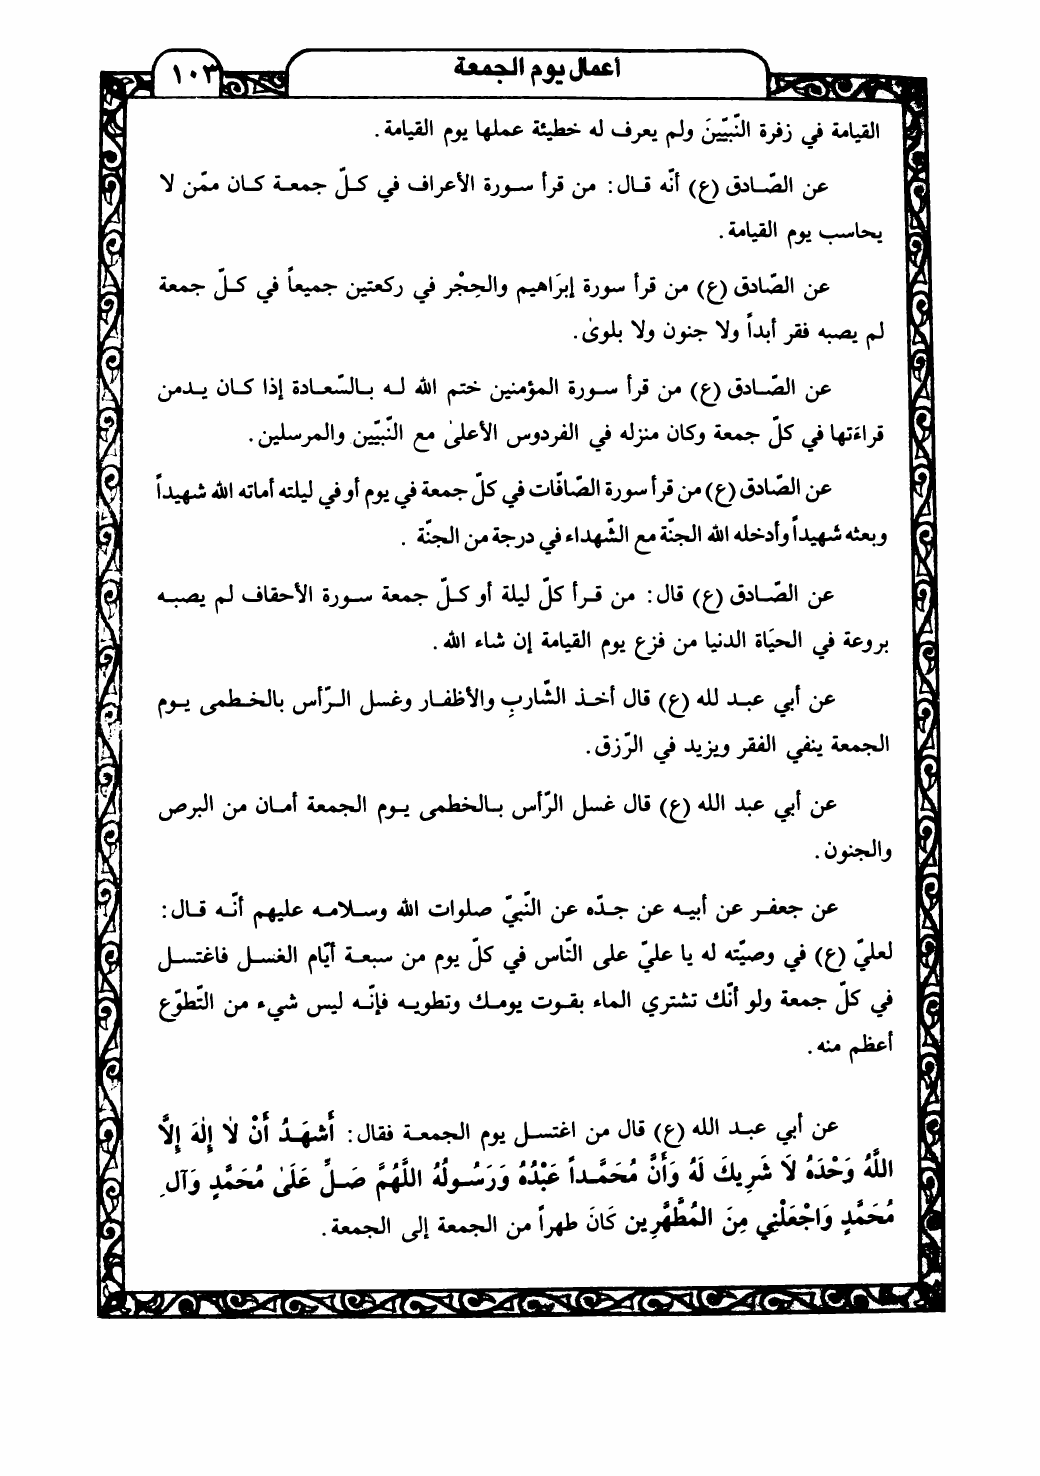 أعمال يوم الجمعة
١٠٣
القيامة في زفرة النّبيّينَ ولم يعرف له خطيئة عملها يوم القيامة.
عن الصّادق (ع) أنّه قال: من قرأ سورة الأعراف في كلّ جمعة كان ممّن لا
يحاسب يوم القيامة.
عن الصّادق (ع) من قرأ سورة إبرَاهيم والحِجْر في ركعتين جميعاً في كلّ جمعة
لم يصبه فقر أبداً ولا جنون ولا بلوىٰ.
عن الصّادق (ع) من قرأ سورة المؤمنين ختم الله له بالسّعادة إذا كان يدمن
قراءَتها في كلّ جمعة وكان منزله في الفردوس الأعلىٰ مع النّبيّين والمرسلين.
عن الصّادق (ع) من قرأ سورة الصّافّات في كلّ جمعة في يوم أو في ليلته أماته الله شهيداً
وبعثه شهيداً وأدخله الله الجنّة مع الشّهداء في درجة من الجنّة .
عن الصّادق (ع) قال: من قرأ كلّ ليلة أو كلّ جمعة سورة الأحقاف لم يصبه
بروعة في الحيَاة الدنيا من فزع يوم القيامة إن شاء الله.
عن أبي عبد لله (ع) قال أخذ الشّاربِ والأظفار وغسل الرّأس بالخطمى يوم
الجمعة ينفي الفقر ويزيد في الرّزق.
عن أبي عبد الله (ع) قال غسل الرّأس بالخطمى يوم الجمعة أمان من البرص
والجنون.
عن جعفر عن أبيه عن جدّه عن النّبيّ صلوات الله وسلامه عليهم أنّه قال:
لعليّ (ع) في وصيّته له يا عليّ على النّاس في كلّ يوم من سبعة أيّام الغسل فاغتسل
في كلّ جمعة ولو أنّك تشتري الماء بقوت يومك وتطويه فإنّه ليس شيء من التّطوّع
أعظم منه.
عن أبي عبد الله (ع) قال من اغتسل يوم الجمعة فقال: أَشهَدُ أَنْ لاٰ إِلٰهَ إِلاَّ
اللَّهُ وَحْدَهُ لاَ شَرِيكَ لَهُ وَأَنَّ مُحَمَّداً عَبْدُهُ وَرَسُولُهُ اللَّهُمَّ صَلِّ عَلَىٰ مُحَمَّدٍ وَآلِ
مُحَمَّدٍ وَاجْعَلْنِي مِنَ المُطَّهَّرِين كَانَ طهراً من الجمعة إلى الجمعة.